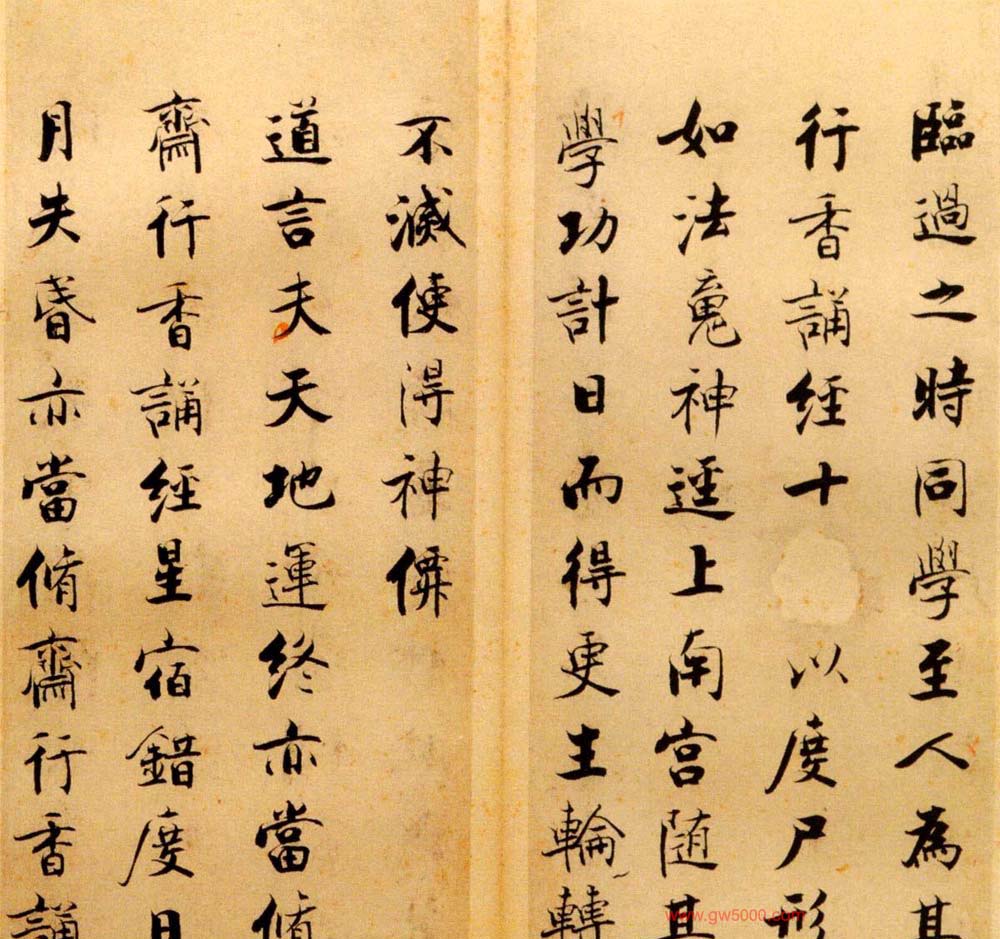 臨過之時同學至人為其
行香誦經十以度尸形
如法䰟神逕上南宫随其
學功計日而得更生輪轉
不滅使得神僊
道言夫天地運終亦當脩
齋行香誦經星宿錯度日
月失昏亦當脩齋行香誦
www.gw5000.com